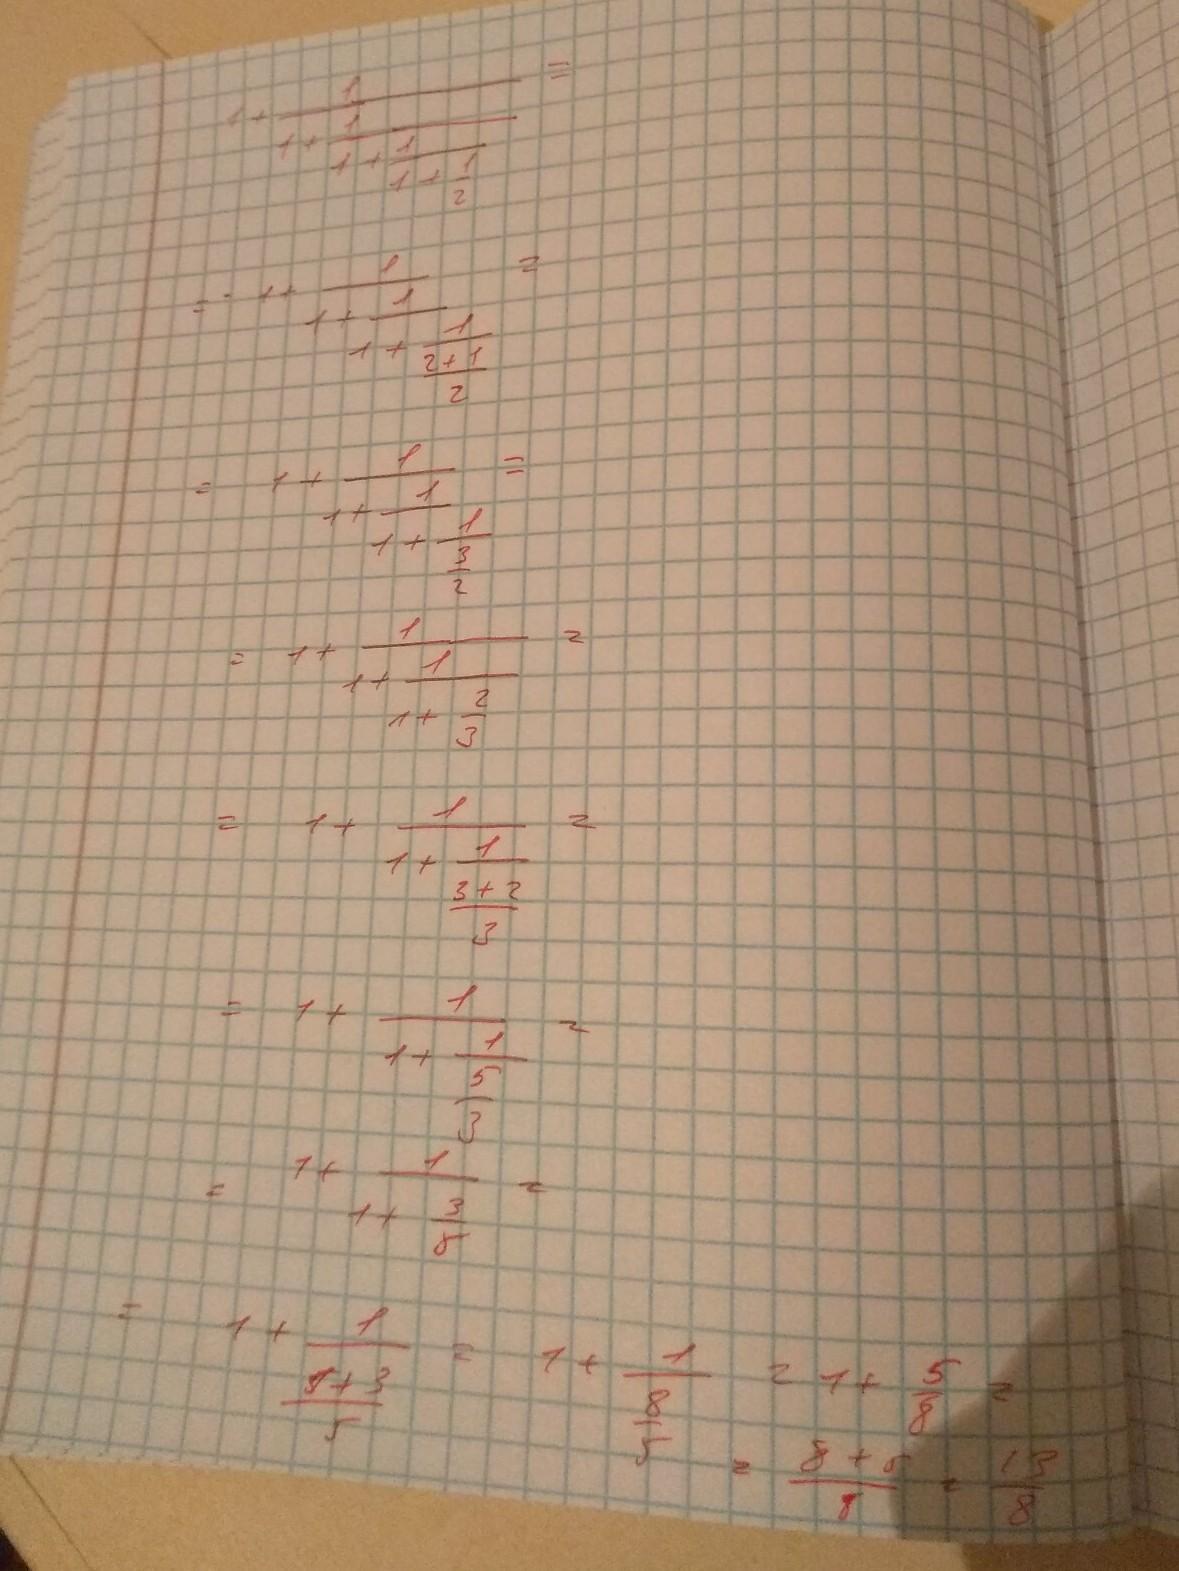 1 + 1/(1 + 1/(1 + 1/(1 + 1/2))) =
= 1 + 1/(1 + 1/(1 + 1/((2+1)/2))) =
= 1 + 1/(1 + 1/(1 + 1/(3/2))) =
= 1 + 1/(1 + 1/(1 + 2/3)) =
= 1 + 1/(1 + 1/((3+2)/3)) =
= 1 + 1/(1 + 1/(5/3)) =
= 1 + 1/(1 + 3/5) =
= 1 + 1/((5+3)/5) = 1 + 1/(8/5) = 1 + 5/8 =
= (8+5)/8 = 13/8